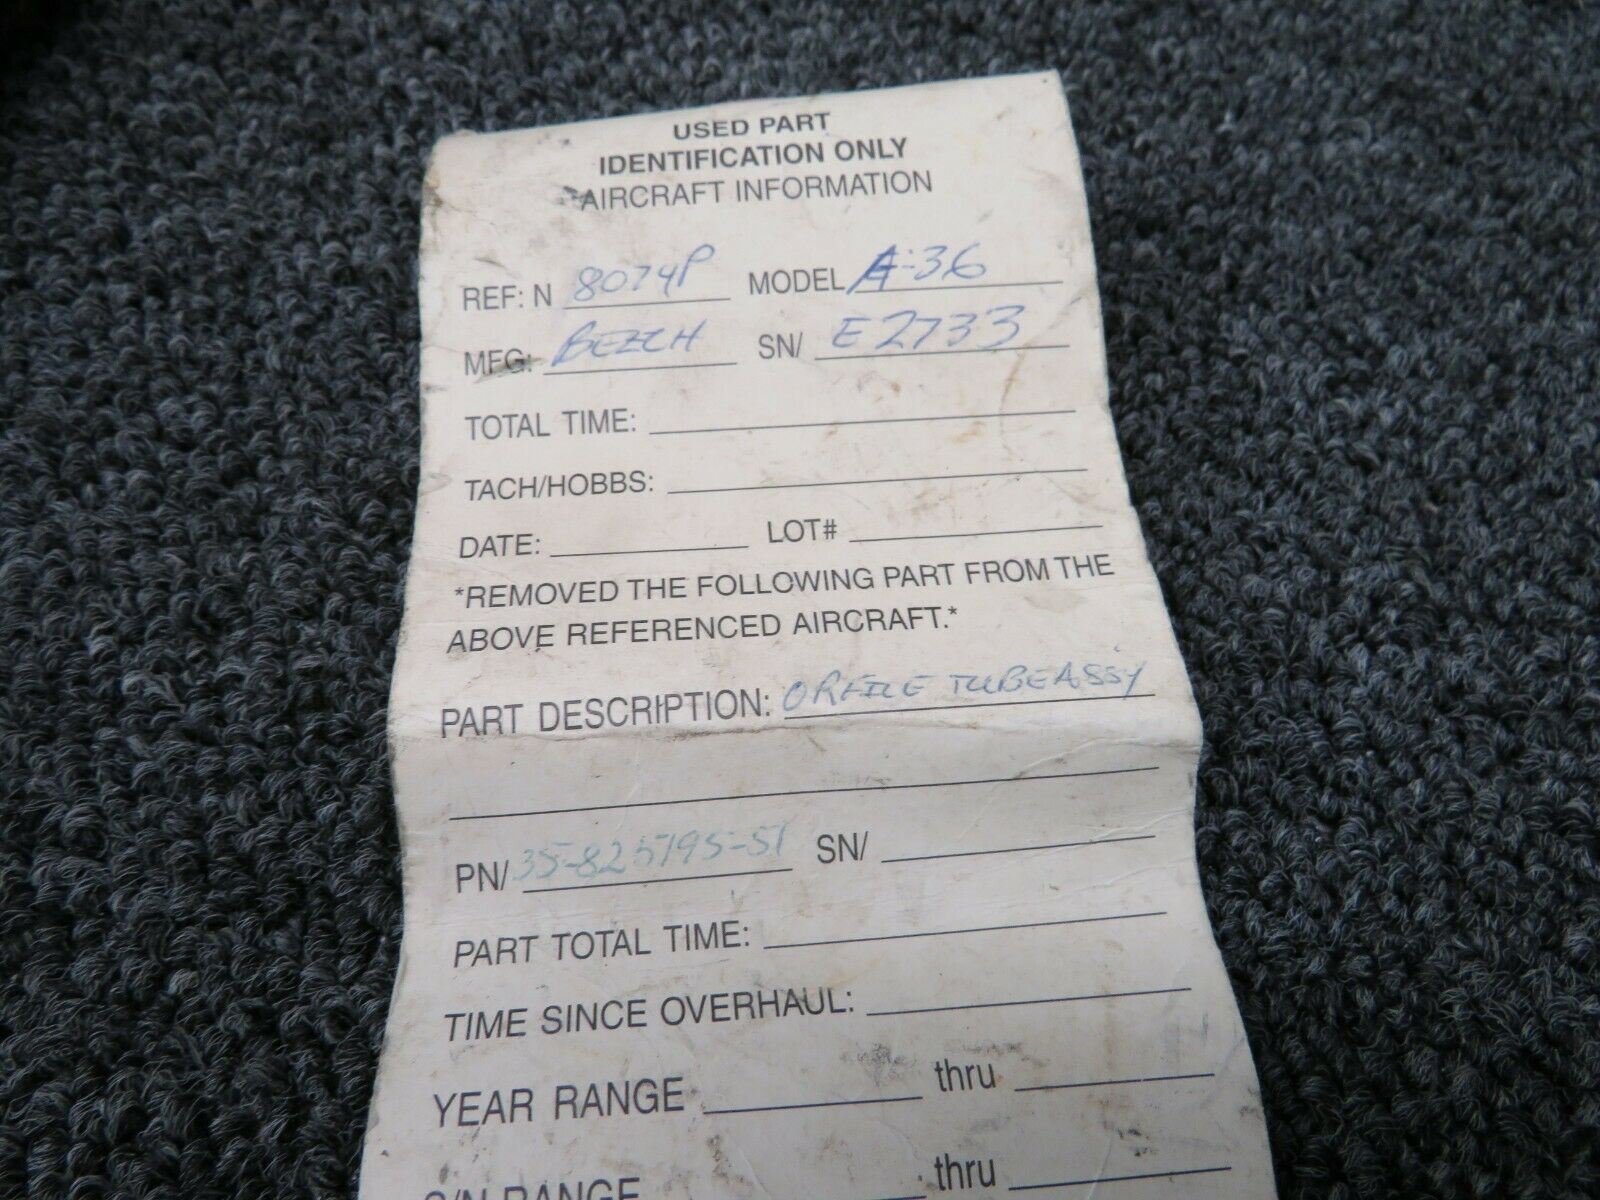 USED PART
IDENTIFICATION ONLY
AIRCRAFT INFORMATION
REF: N 8074P MODEL A-36
MFG: BEECH SN/ E2733
TOTAL TIME:
TACH/HOBBS:
DATE: LOT#
*REMOVED THE FOLLOWING PART FROM THE
ABOVE REFERENCED AIRCRAFT.*
PART DESCRIPTION: ORFICE TUBE ASSY
PN/ 35-825195-51 SN/
PART TOTAL TIME:
TIME SINCE OVERHAUL:
YEAR RANGE thru
S/N RANGE thru